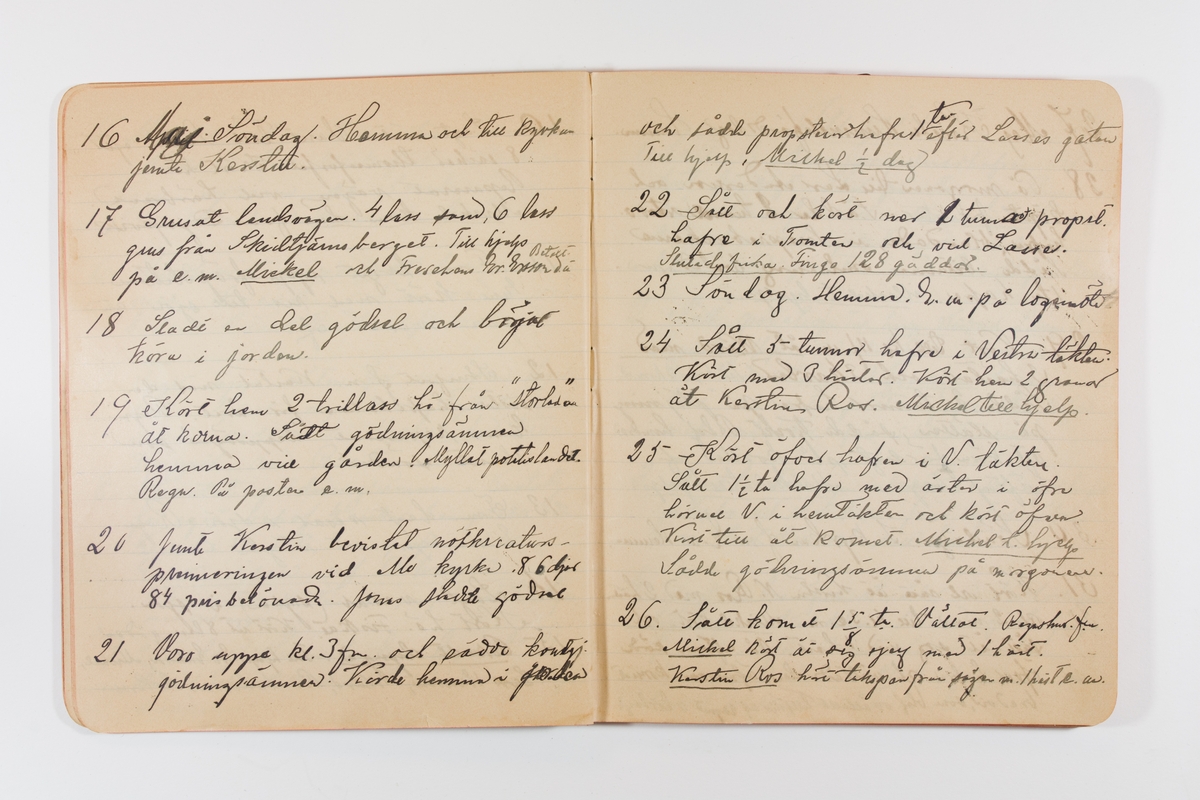 16 Maj. Söndag. Hemma och till kyrkan
jemte Kerstin.
17 Grusat landsvägen. 4 lass sand, 6 lass
grus från Skidtjärnsberget. Till hjelp
på e.m. Mickel och
18 en del gödsel och börjat
köra i jorden.
19 Kört hem 2 trillass hö från "Storladan"
åt korna. Sådt gödningsämnen
hemma vid gården. Myllat potatislandet.
Regn. På posten e.m.
20 Jemte Kerstin bevistat nötkreaturs-
premieringen vid Mo kyrka. 86 djur
84 prisbelönade. Jonas gödsel
21 Voro uppe kl. 3 fm. och sådde
gödningsämnen. Körde hemma i
och sådde propsteihafre 1 tn efter Larses gatan
Till hjelp, Mickel 1/2 dag
22 Sått och kört ner 2 tunnor propst.
hafre i Tomten och vid Lasse.
Fingo 128 gäddor.
23 Söndag. Hemma. E. m. på logemöte
24 Sått 5 tunnor hafre i Vestra täkten.
Kört med 3 hästar. Kört hem 2 granar
åt Kerstins Ros. Mickel till hjelp.
25 Kört öfver hafren i V. täkten.
Sått 1 1/2 tn hafre med ärter i öfre
hörnet V. i hemtäkten och kört öfver.
Kört till åt kornet. Mickel t. hjelp
Sådde gödningsämnen på morgonen.
26. Sått kornet 1 5/8 tn. Vältat. Regnskur. f.m.
Mickel kört åt sig sjelf med 1 häst.
Kerstin Ros kört från sågen m. 1 häst e. m.